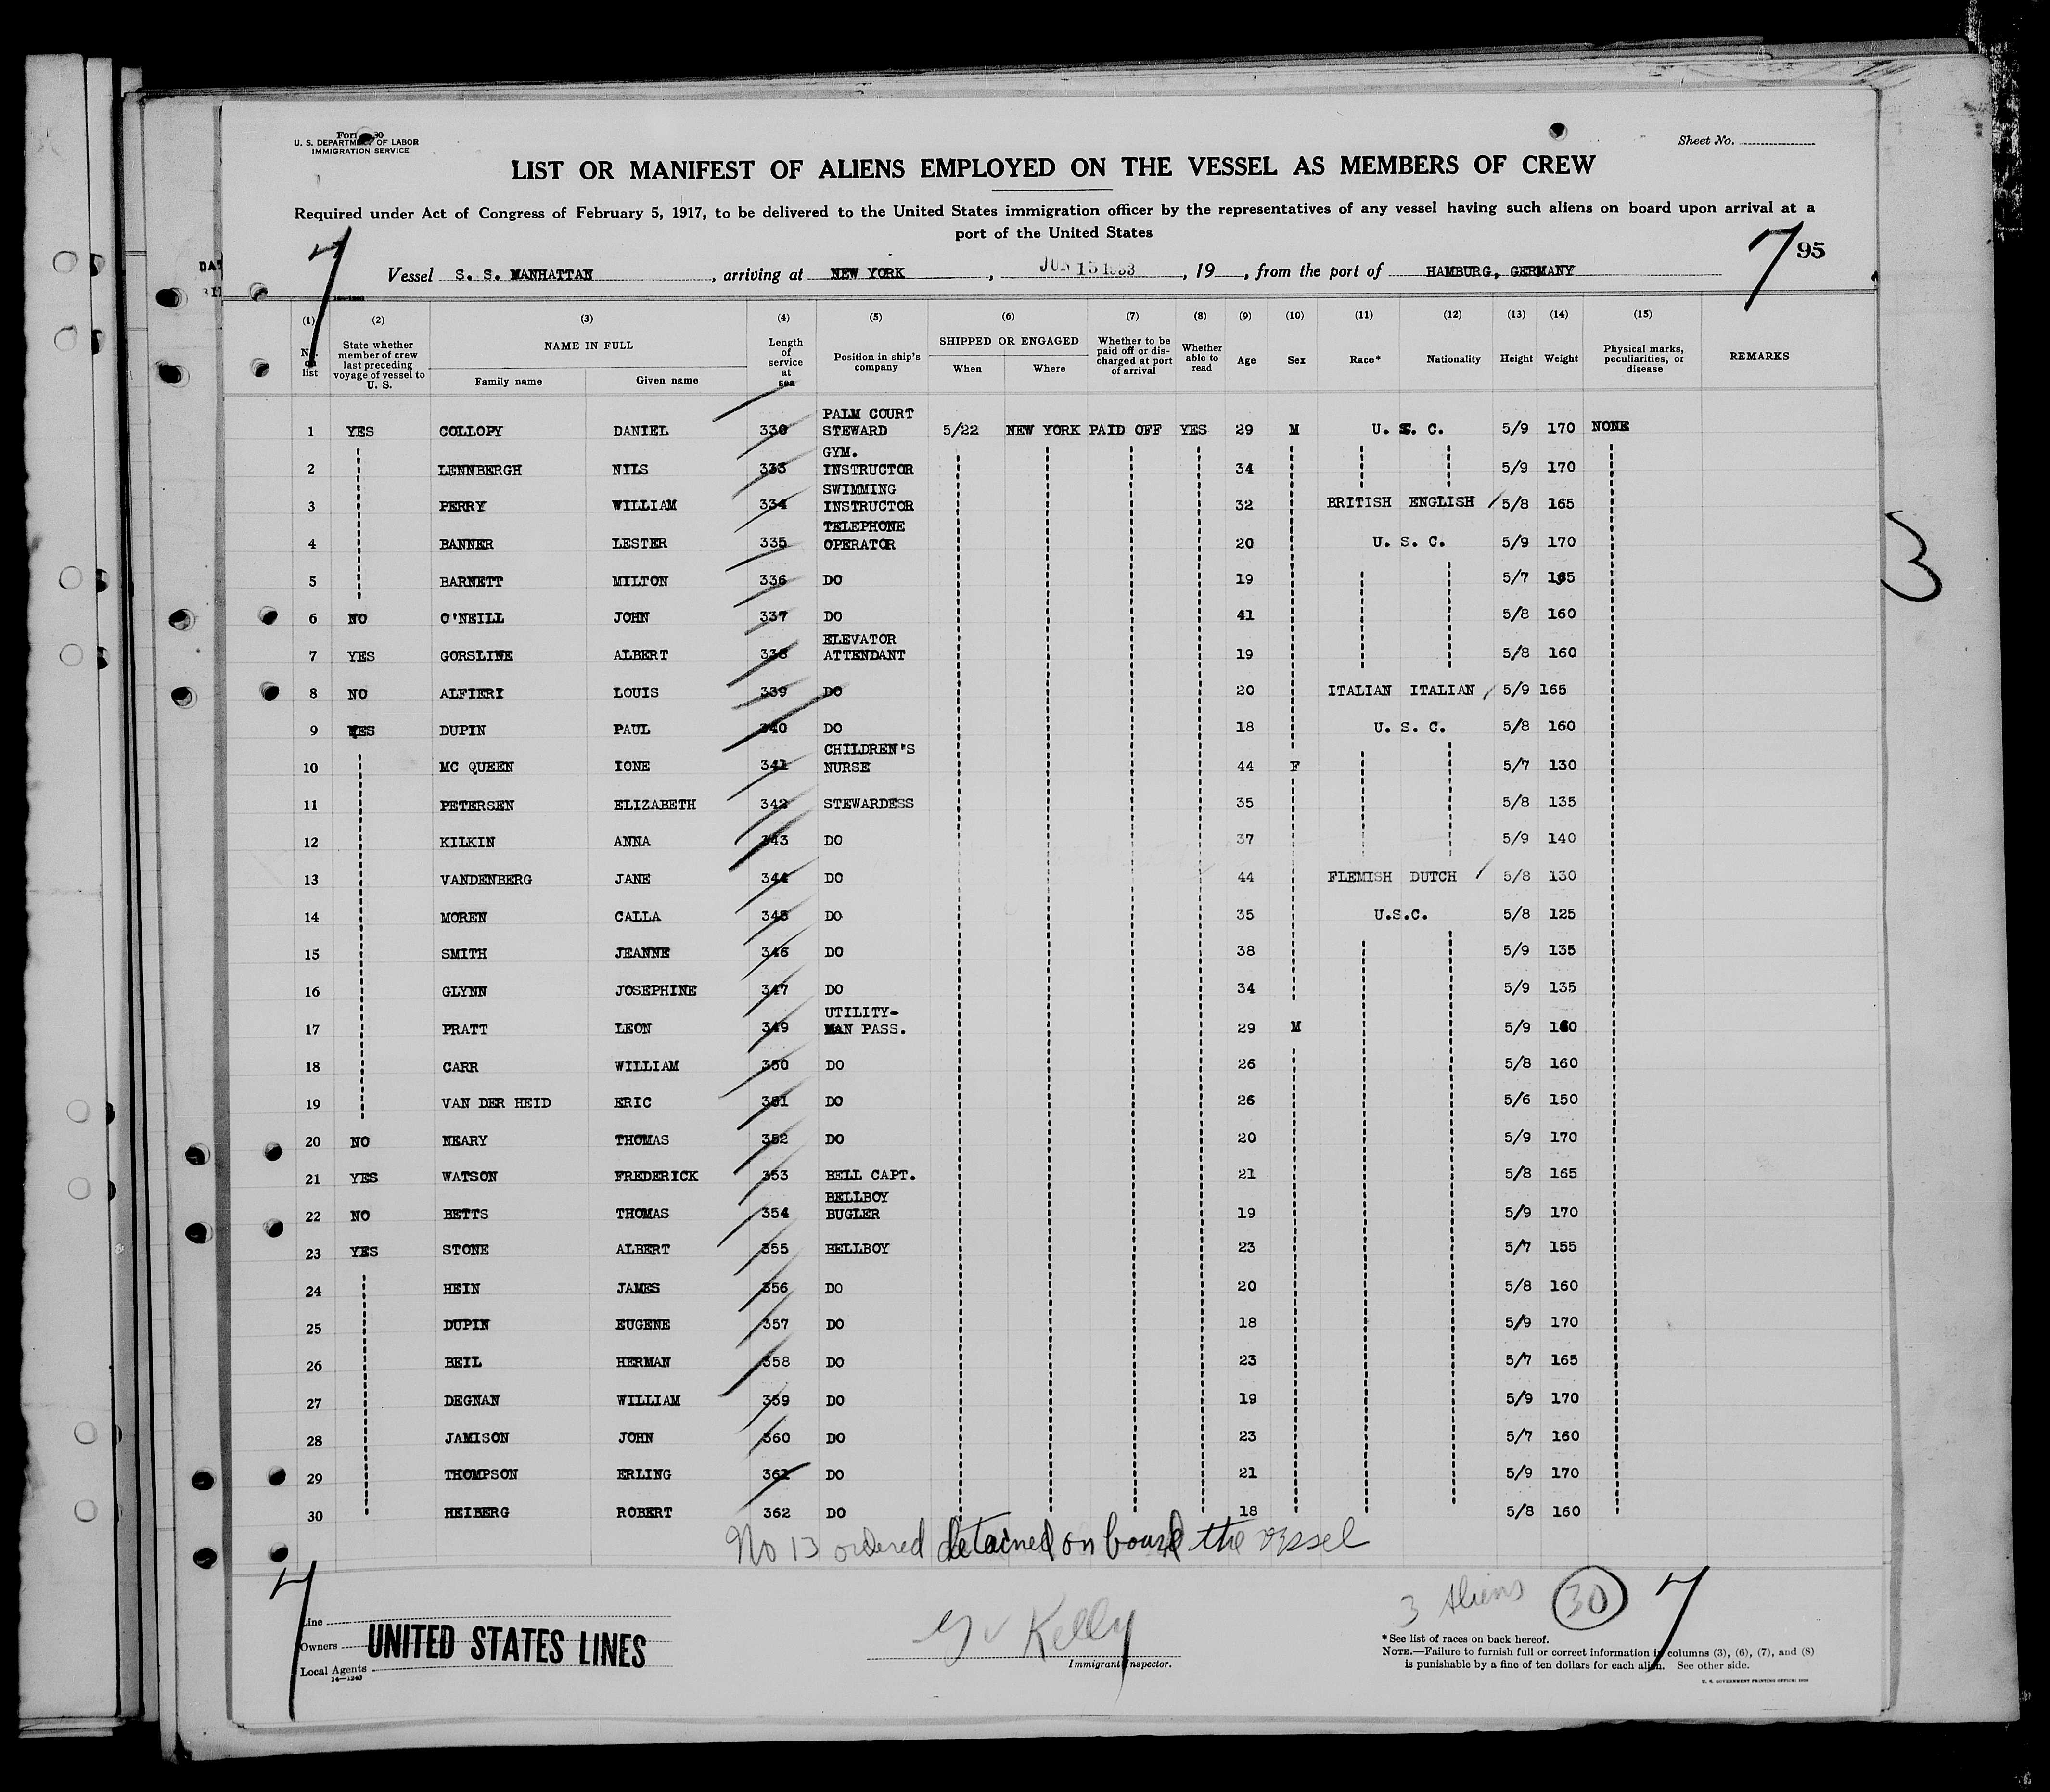 U. S. DEPARTMENT OF LABOR
IMMIGRATION SERVICE
Sheet No.
LIST OR MANIFEST OF ALIENS EMPLOYED ON THE VESSEL AS MEMBERS OF CREW
Required under Act of Congress of February 5, 1917, to be delivered to the United States immigration officer by the representatives of any vessel having such aliens on board upon arrival at a
port of the United States
7 7 95
Vessel S. S. MANHATTAN, arriving at NEW YORK, JUN 15 1933, 19, from the port of HAMBURG, GERMANY
(1) (2) (3) (4) (5) (6) (7) (8) (9) (10) (11) (12) (13) (14) (15)
No. on list State whether member of crew last preceding voyage of vessel to U. S. NAME IN FULL Family name Given name Length of service at sea Position in ship's company SHIPPED OR ENGAGED When Where Whether to be paid off or discharged at port of arrival Whether able to read Age Sex Race* Nationality Height Weight Physical marks, peculiarities, or disease REMARKS
1 YES COLLOPY DANIEL 330 PALM COURT STEWARD 5/22 NEW YORK PAID OFF YES 29 M U. S. C. 5/9 170 NONE
2 LENNBERGH NILS 333 GYM. INSTRUCTOR 34 5/9 170
3 PERRY WILLIAM 334 SWIMMING INSTRUCTOR 32 BRITISH ENGLISH 5/8 165
4 BANNER LESTER 335 TELEPHONE OPERATOR 20 U. S. C. 5/9 170
5 BARNETT MILTON 336 DO 19 5/7 165
6 NO O'NEILL JOHN 337 DO 41 5/8 160
7 YES GORSLINE ALBERT 338 ELEVATOR ATTENDANT 19 5/8 160
8 NO ALFIERI LOUIS 339 DO 20 ITALIAN ITALIAN 5/9 165
9 YES DUPIN PAUL 340 DO 18 U. S. C. 5/8 160
10 MC QUEEN IONE 341 CHILDREN'S NURSE 44 F 5/7 130
11 PETERSEN ELIZABETH 342 STEWARDESS 35 5/8 135
12 KILKIN ANNA 343 DO 37 5/9 140
13 VANDENBERG JANE 344 DO 44 FLEMISH DUTCH 5/8 130
14 MOREN CALLA 345 DO 35 U.S.C. 5/8 125
15 SMITH JEANNE 346 DO 38 5/9 135
16 GLYNN JOSEPHINE 347 DO 34 5/9 135
17 PRATT LEON 349 UTILITY- MAN PASS. 29 M 5/9 160
18 CARR WILLIAM 350 DO 26 5/8 160
19 VAN DER HEID ERIC 351 DO 26 5/6 150
20 NO NEARY THOMAS 352 DO 20 5/9 170
21 YES WATSON FREDERICK 353 BELL CAPT. 21 5/8 165
22 NO BETTS THOMAS 354 BELLBOY BUGLER 19 5/9 170
23 YES STONE ALBERT 355 BELLBOY 23 5/7 155
24 HEIN JAMES 356 DO 20 5/8 160
25 DUPIN EUGENE 357 DO 18 5/9 170
26 BEIL HERMAN 358 DO 23 5/7 165
27 DEGNAN WILLIAM 359 DO 19 5/9 170
28 JAMISON JOHN 360 DO 23 5/7 160
29 THOMPSON ERLING 361 DO 21 5/9 170
30 HEIBERG ROBERT 362 DO 18 5/8 160
3
No 13 ordered detained on board the vessel
7 3 Aliens 30 7
Line
Owners UNITED STATES LINES
Local Agents
14—1240
Kelly
Immigrant Inspector.
*See list of races on back hereof.
NOTE.—Failure to furnish full or correct information in columns (3), (6), (7), and (8)
is punishable by a fine of ten dollars for each alien. See other side.